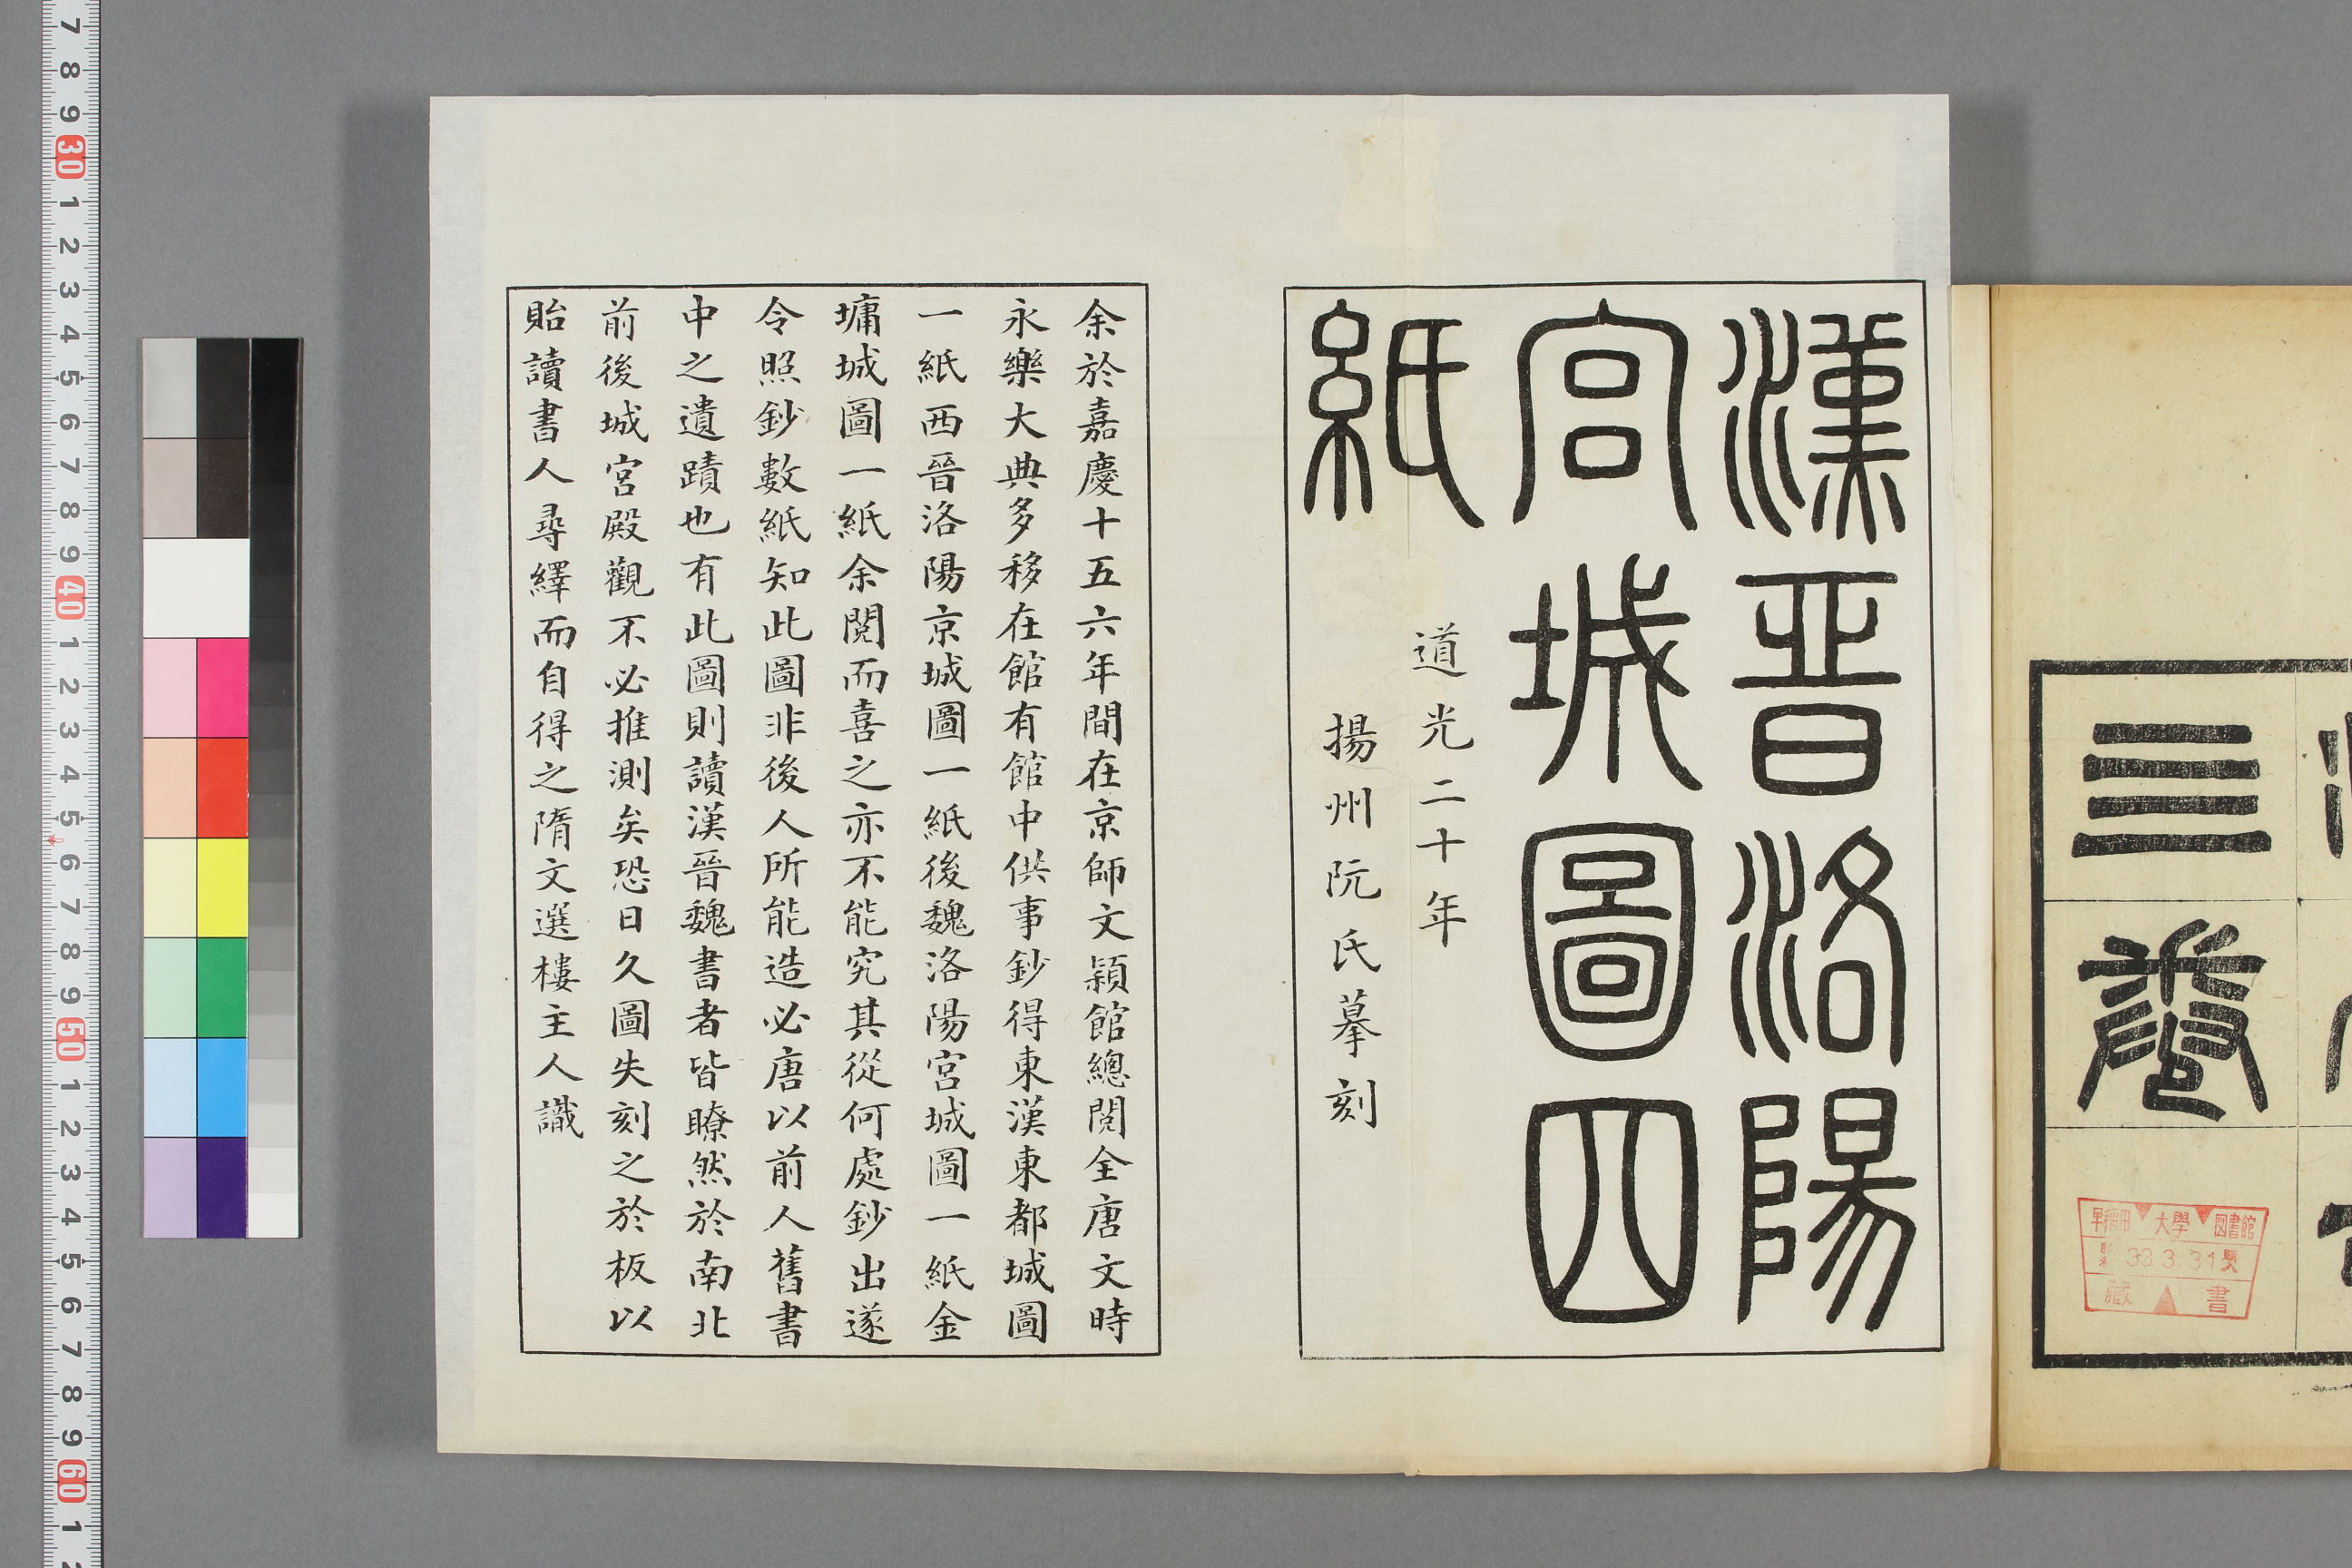 三卷
早稻田大學図書館
昭和 33.3.31 受
藏書
漢晋洛陽
宮城圖四
紙
道光二十年
揚州阮氏摹刻
余於嘉慶十五六年間在京師文穎館總閱全唐文時
永樂大典多移在館有館中供事鈔得東漢東都城圖
一紙西晉洛陽京城圖一紙後魏洛陽宮城圖一紙金
墉城圖一紙余閱而喜之亦不能究其從何處鈔出遂
令照鈔數紙知此圖非後人所能造必唐以前人舊書
中之遺蹟也有此圖則讀漢晉魏書者皆瞭然於南北
前後城宮殿觀不必推測矣恐日久圖失刻之於板以
貽讀書人尋繹而自得之隋文選樓主人識
7 8 9 30 1 2 3 4 5 6 7 8 9 40 1 2 3 4 5 6 7 8 9 50 1 2 3 4 5 6 7 8 9 60 1 2